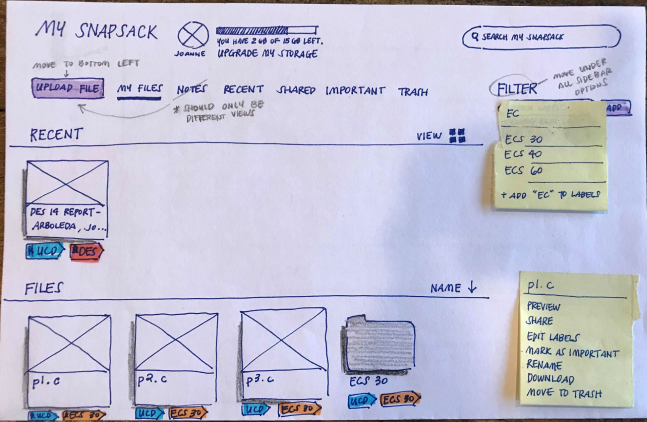 MY SNAPSACK
JOANNE
YOU HAVE 2 GB OF 15 GB LEFT.
UPGRADE MY STORAGE
SEARCH MY SNAPSACK
MOVE TO BOTTOM LEFT
UPLOAD FILE
MY FILES NOTES RECENT SHARED IMPORTANT TRASH
* SHOULD ONLY BE
DIFFERENT VIEWS
FILTER
MOVE UNDER
ALL SIDEBAR
OPTIONS
ADD
EC
ECS 30
ECS 40
ECS 60
+ ADD "EC" TO LABELS
RECENT
VIEW
DES 14 REPORT -
ARBOLEDA, JO...
UCD
DES
FILES
NAME ↓
p1.c
p2.c
p3.c
ECS 30
UCD ECS 30
UCD ECS 30
UCD ECS 30
UCD ECS 30
p1.c
PREVIEW
SHARE
EDIT LABELS
MARK AS IMPORTANT
RENAME
DOWNLOAD
MOVE TO TRASH